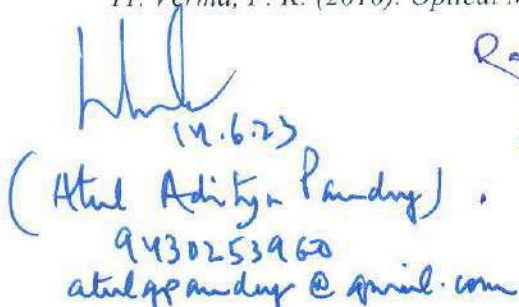 11. Verma, P. K. (2016). Optical M
Ra
14.6.23
(Atul Aditya Pandey).
9430253960
@gmail.com